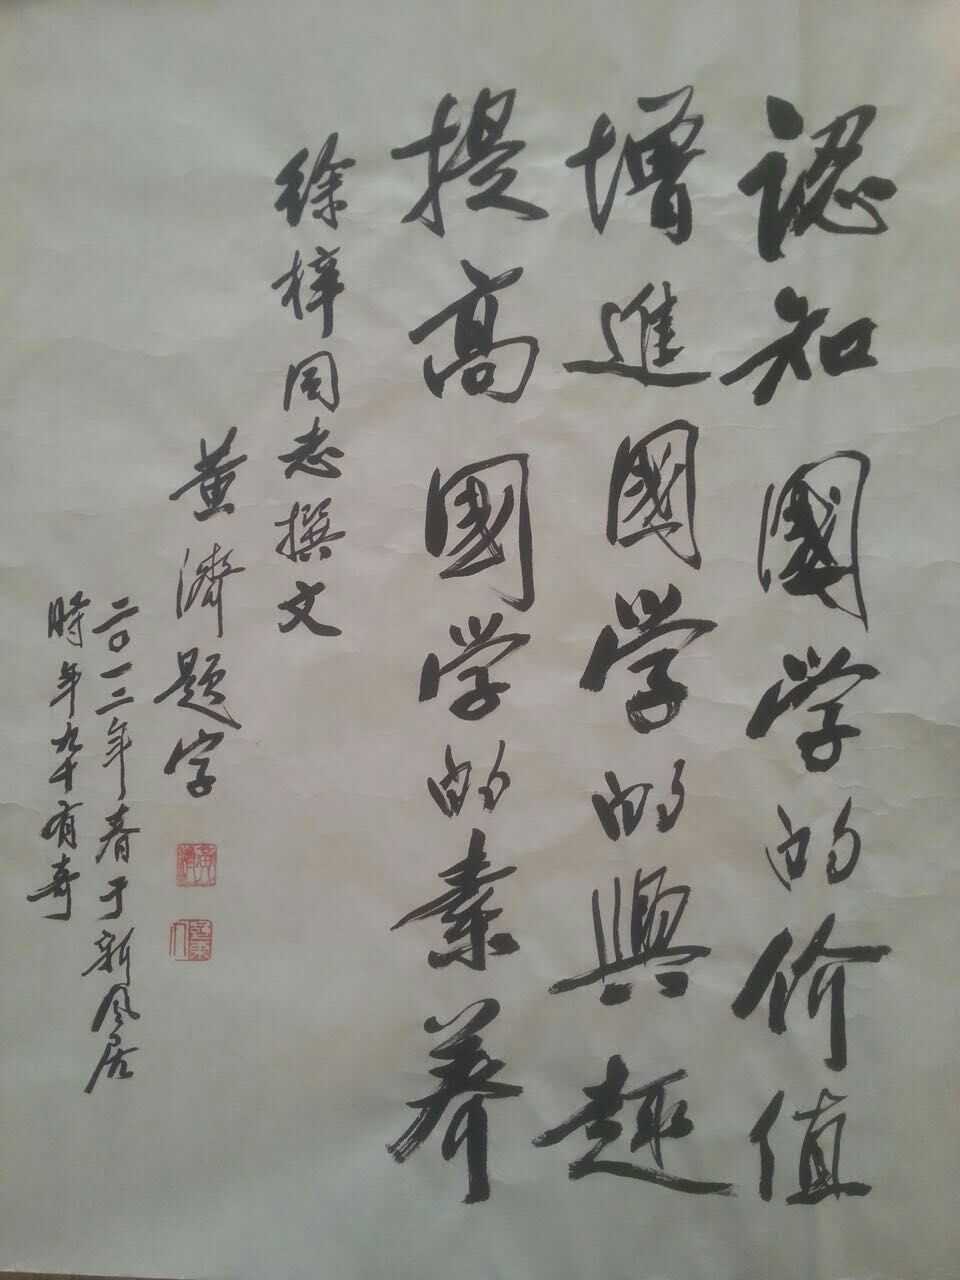 認知國学的价值
增進國学的興趣
提高國学的素养
徐梓同志撰文
黄濟題字
二〇一三年春于新风居
時年九十有奇